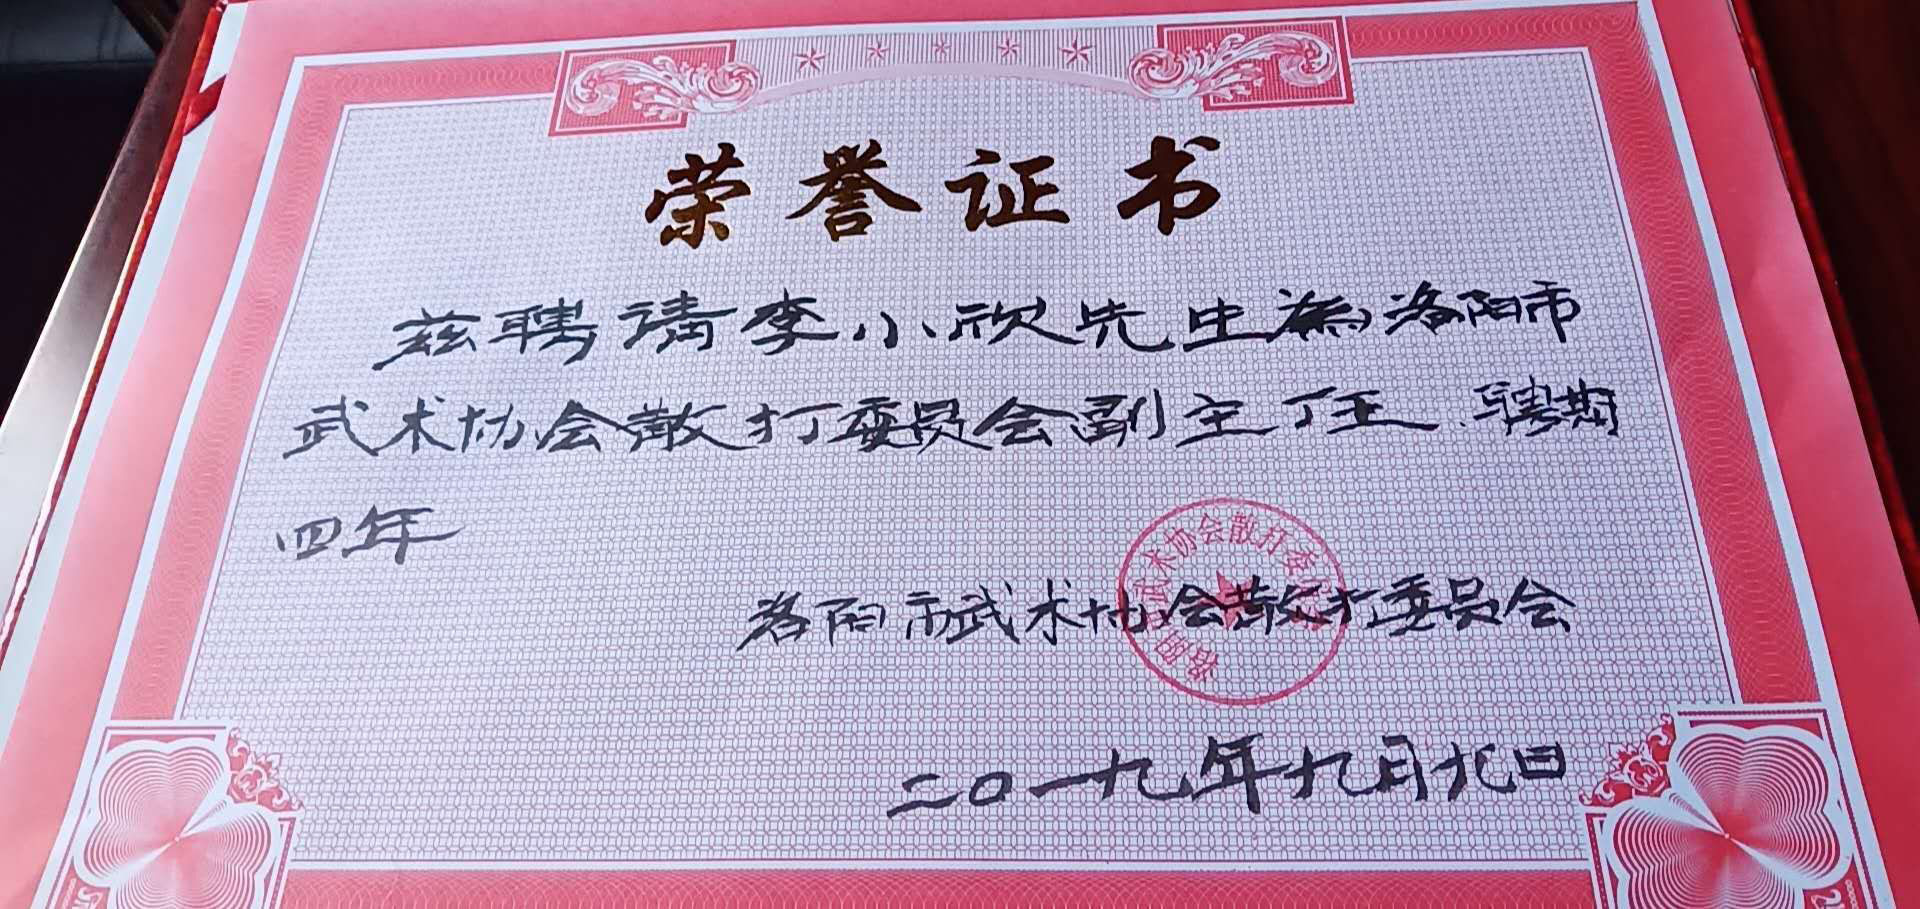 荣誉证书
兹聘请李小欣先生為洛阳市
武术协会散打委员会副主任.聘期
四年
洛阳市武术协会散打委员会
洛阳市武术协会散打委员会
二〇一九年九月九日